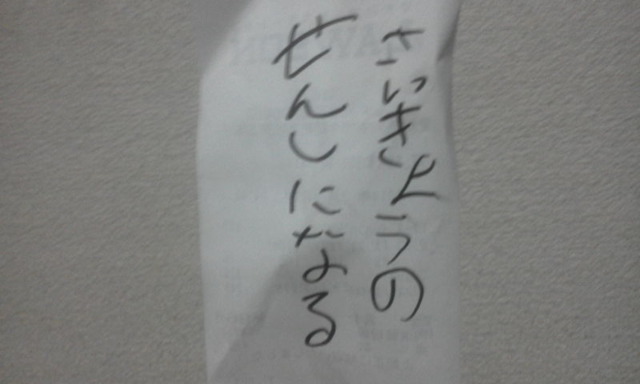 さいきょうの
せんしになる